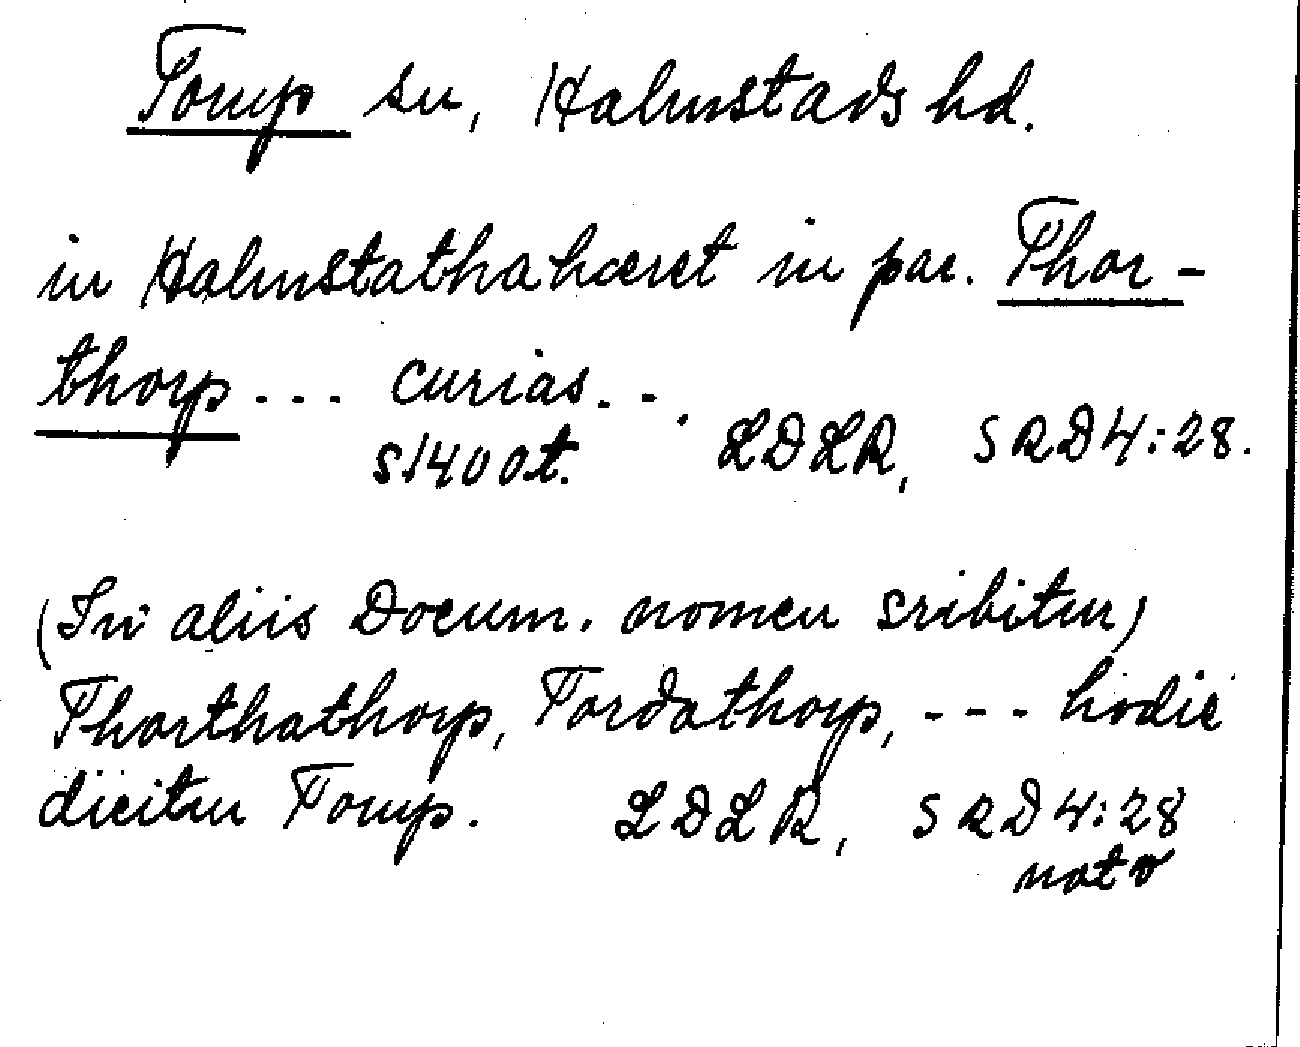 Torup sn, Halmstads hd.
in Halmstathahæret in par. Thor-
thorp --- curias ---.
s1400t. LDLR, SRD4:28.
(In aliis Docum. nomen sribitur)
Thorthathorp, Tordathorp, --- hodie
dicitur Torup. LDLR, SRD4:28
not v